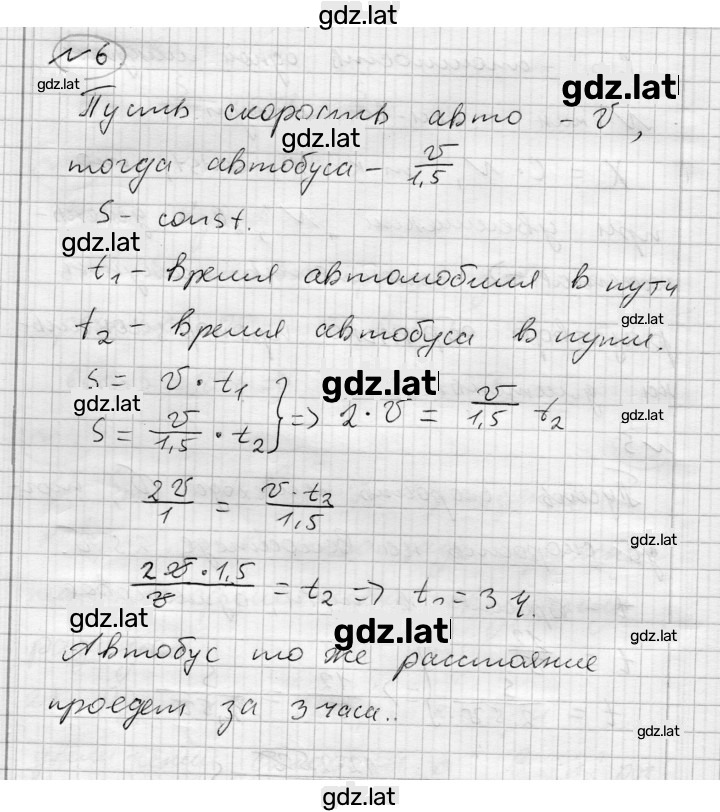 gdz.lat
№ 6
gdz.lat
gdz.lat
Пусть скорость авто – v,
gdz.lat
тогда автобуса – v/1,5
S – const.
gdz.lat
t₁ – время автомобиля в пути
gdz.lat
t₂ – время автобуса в пути.
S = v · t₁
gdz.lat
gdz.lat
S = v/1,5 · t₂ } => 2 · v = v/1,5 t₂
gdz.lat
2v/1 = v · t₂/1,5
gdz.lat
2v · 1,5/v = t₂ => t₂ = 3 ч.
gdz.lat
gdz.lat
gdz.lat
Автобус то же расстояние
проедет за 3 часа..
gdz.lat
gdz.lat